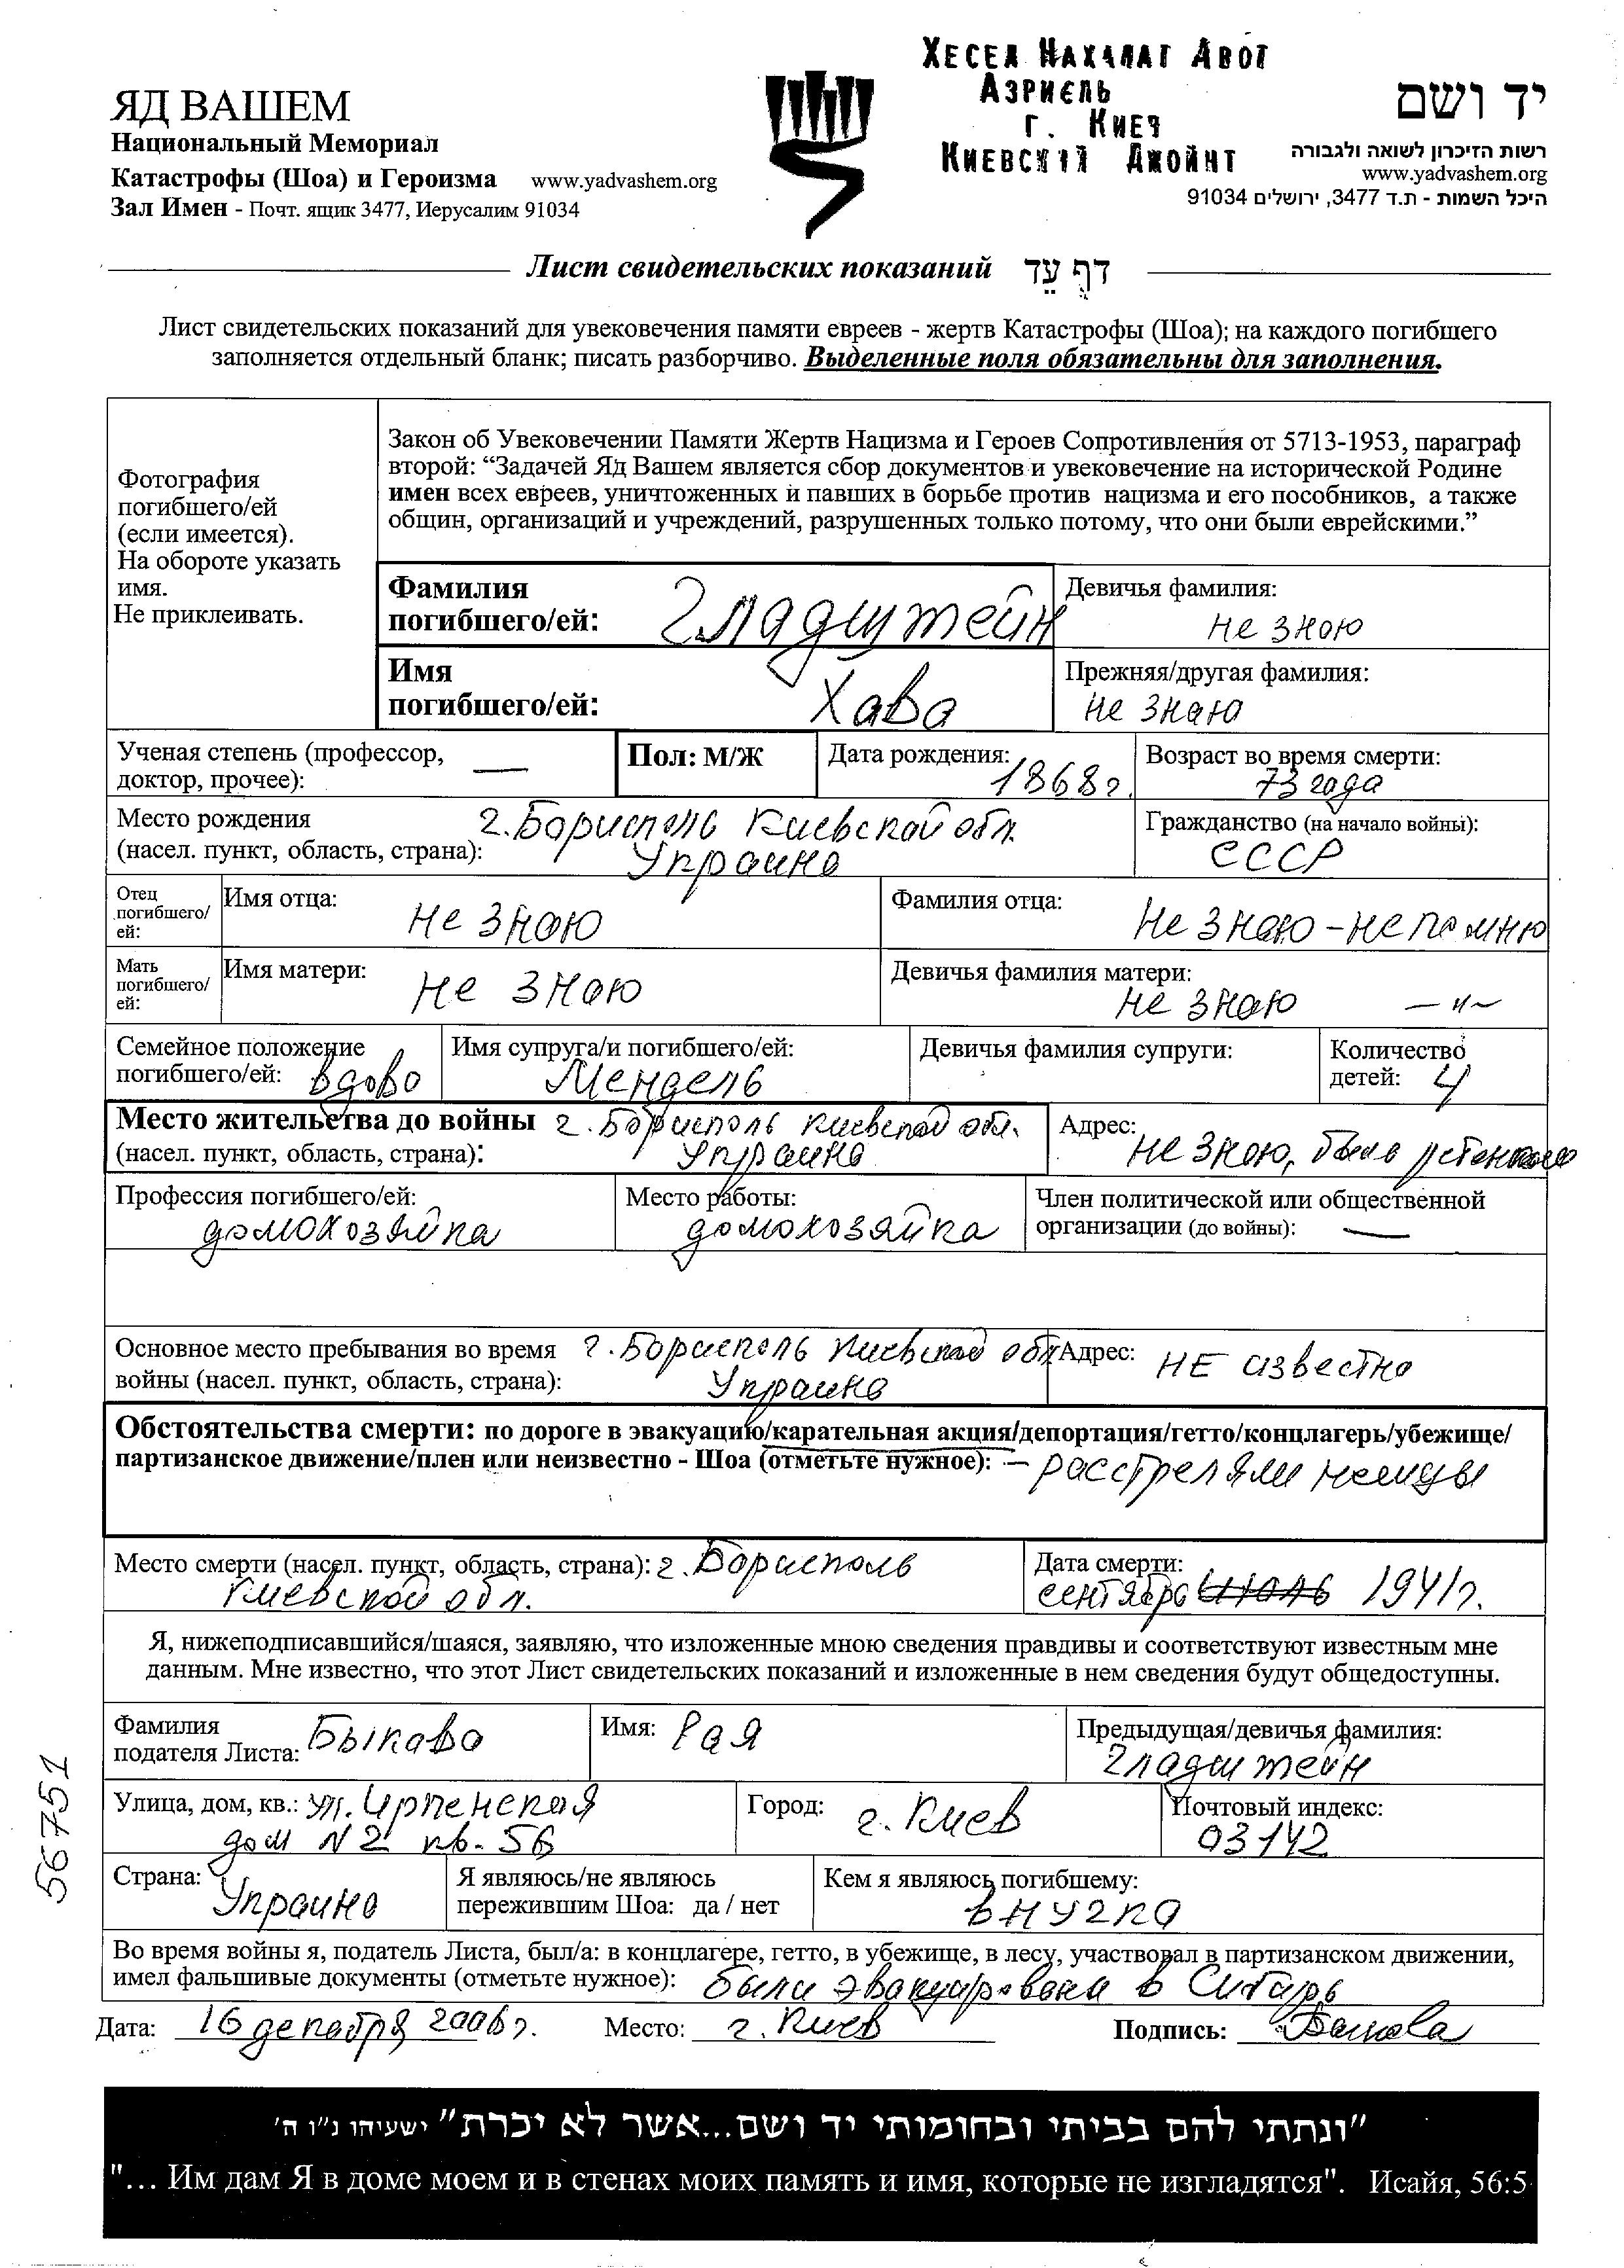 ХЕСЕД НАХАЛАТ АВОТ
АЗРИЕЛЬ
г. КИЕВ
КИЕВСКИЙ ДЖОЙНТ
ЯД ВАШЕМ
Национальный Мемориал
Катастрофы (Шоа) и Героизма www.yadvashem.org
Зал Имен - Почт. ящик 3477, Иерусалим 91034
יד ושם
רשות הזיכרון לשואה ולגבורה
www.yadvashem.org
היכל השמות - ת.ד 3477, ירושלים 91034
Лист свидетельских показаний דף עד
Лист свидетельских показаний для увековечения памяти евреев - жертв Катастрофы (Шоа); на каждого погибшего
заполняется отдельный бланк; писать разборчиво. Выделенные поля обязательны для заполнения.
Фотография
погибшего/ей
(если имеется).
На обороте указать
имя.
Не приклеивать.
Закон об Увековечении Памяти Жертв Нацизма и Героев Сопротивления от 5713-1953, параграф
второй: “Задачей Яд Вашем является сбор документов и увековечение на исторической Родине
имен всех евреев, уничтоженных и павших в борьбе против нацизма и его пособников, а также
общин, организаций и учреждений, разрушенных только потому, что они были еврейскими.”
Фамилия
погибшего/ей: Гладштейн
Девичья фамилия:
не знаю
Имя
погибшего/ей: Хава
Прежняя/другая фамилия:
не знаю
Ученая степень (профессор,
доктор, прочее): —
Пол: М/Ж
Дата рождения:
1868г.
Возраст во время смерти:
73 года
Место рождения г. Борисполь Киевской обл.
(насел. пункт, область, страна): Украина
Гражданство (на начало войны):
СССР
Отец
погибшего/
ей:
Имя отца:
не знаю
Фамилия отца:
не знаю - не помню
Мать
погибшего/
ей:
Имя матери:
не знаю
Девичья фамилия матери:
не знаю — " —
Семейное положение
погибшего/ей: вдова
Имя супруга/и погибшего/ей:
Мендель
Девичья фамилия супруги:
Количество
детей: 4
Место жительства до войны г. Борисполь Киевской обл.
(насел. пункт, область, страна): Украина
Адрес:
не знаю, была ребенком
Профессия погибшего/ей:
домохозяйка
Место работы:
домохозяйка
Член политической или общественной
организации (до войны): —
Основное место пребывания во время г. Борисполь Киевской обл
войны (насел. пункт, область, страна): Украина
Адрес: НЕ известно
Обстоятельства смерти: по дороге в эвакуацию/карательная акция/депортация/гетто/концлагерь/убежище/
партизанское движение/плен или неизвестно - Шоа (отметьте нужное): — расстреляли немцы
Место смерти (насел. пункт, область, страна): г. Борисполь
Киевской обл.
Дата смерти:
сентябрь июль 1941г.
Я, нижеподписавшийся/шаяся, заявляю, что изложенные мною сведения правдивы и соответствуют известным мне
данным. Мне известно, что этот Лист свидетельских показаний и изложенные в нем сведения будут общедоступны.
Фамилия
подателя Листа: Быкова
Имя: Рая
Предыдущая/девичья фамилия:
Гладштейн
Улица, дом, кв.: ул. Ирпенская
дом N2 кв. 56
Город: г. Киев
Почтовый индекс:
03142
Страна:
Украина
Я являюсь/не являюсь
пережившим Шоа: да / нет
Кем я являюсь погибшему:
внучка
Во время войны я, податель Листа, был/а: в концлагере, гетто, в убежище, в лесу, участвовал в партизанском движении,
имел фальшивые документы (отметьте нужное): были эвакуирована в Сибирь
Дата: 16 декабря 2006г. Место: г. Киев Подпись: Быкова
56751
"ונתתי להם בביתי ובחומותי יד ושם...אשר לא יכרת" ישעיהו נ"ו ה'
"... Им дам Я в доме моем и в стенах моих память и имя, которые не изгладятся". Исайя, 56:5